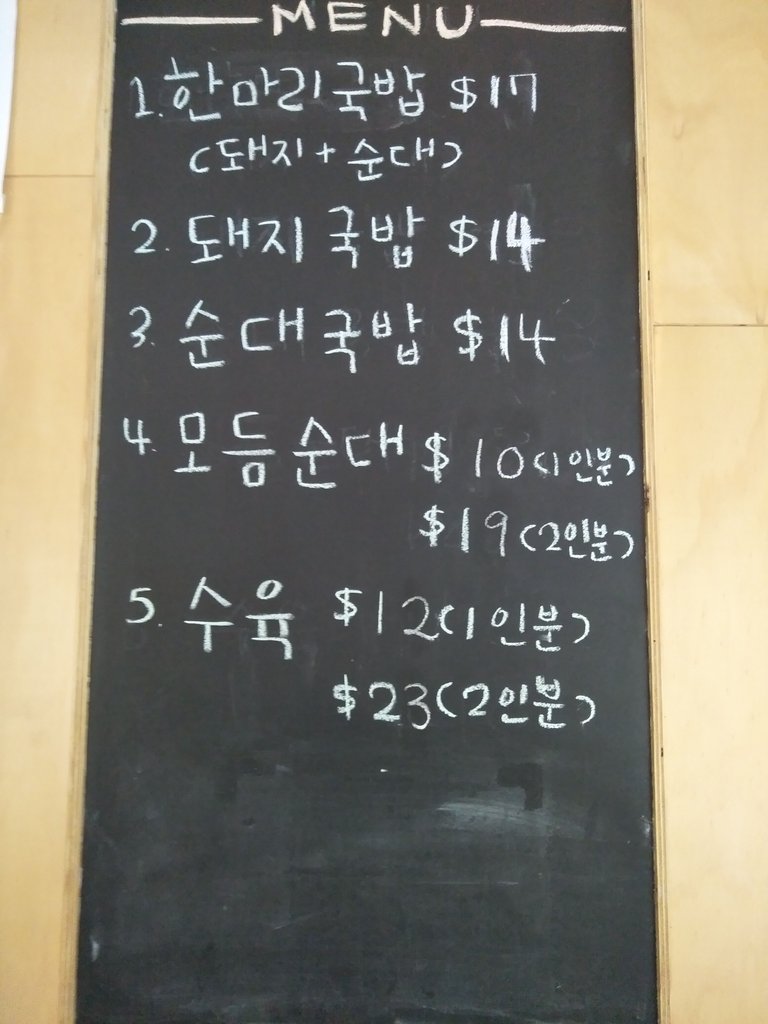 MENU
1. 한마리국밥 $17
(돼지+순대)
2. 돼지국밥 $14
3. 순대국밥 $14
4. 모듬순대 $10(1인분)
$19(2인분)
5. 수육 $12(1인분)
$23(2인분)